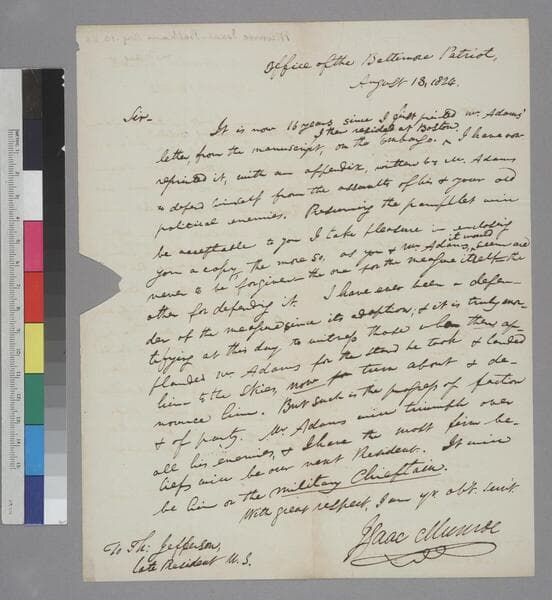 Office of the Baltimore Patriot,
August 13, 1824.
Sir-
It is now 16 years since I first printed Mr. Adams'
letter, from the manuscript, on the Embargo. I then resided at Boston. I have now
reprinted it, with an appendix, written by Mr. Adams
to defend himself from the assaults of his & your old
political enemies. Presuming the pamphlet will
be acceptable to you I take pleasure in enclosing
you a copy, the more so, as you & Mr. Adams, it would seem are
never to be forgiven the one for the measure itself & the
other for defending it. I have ever been a defen-
der of the measure since its adoption; & it is truly mor-
tifying at this day to witness those who then ap-
plauded Mr. Adams for the stand he took & lauded
him to the skies, now turn about & de-
nounce him. But such is the progress of faction
& of party. Mr. Adams will triumph over
all his enemies, & I have the most firm be-
liefs will be our next President. It will
be him or the military Chieftain.
With great respect, I am yr obt. servt.
Isaac Munroe
To Th: Jefferson,
late President U.S.